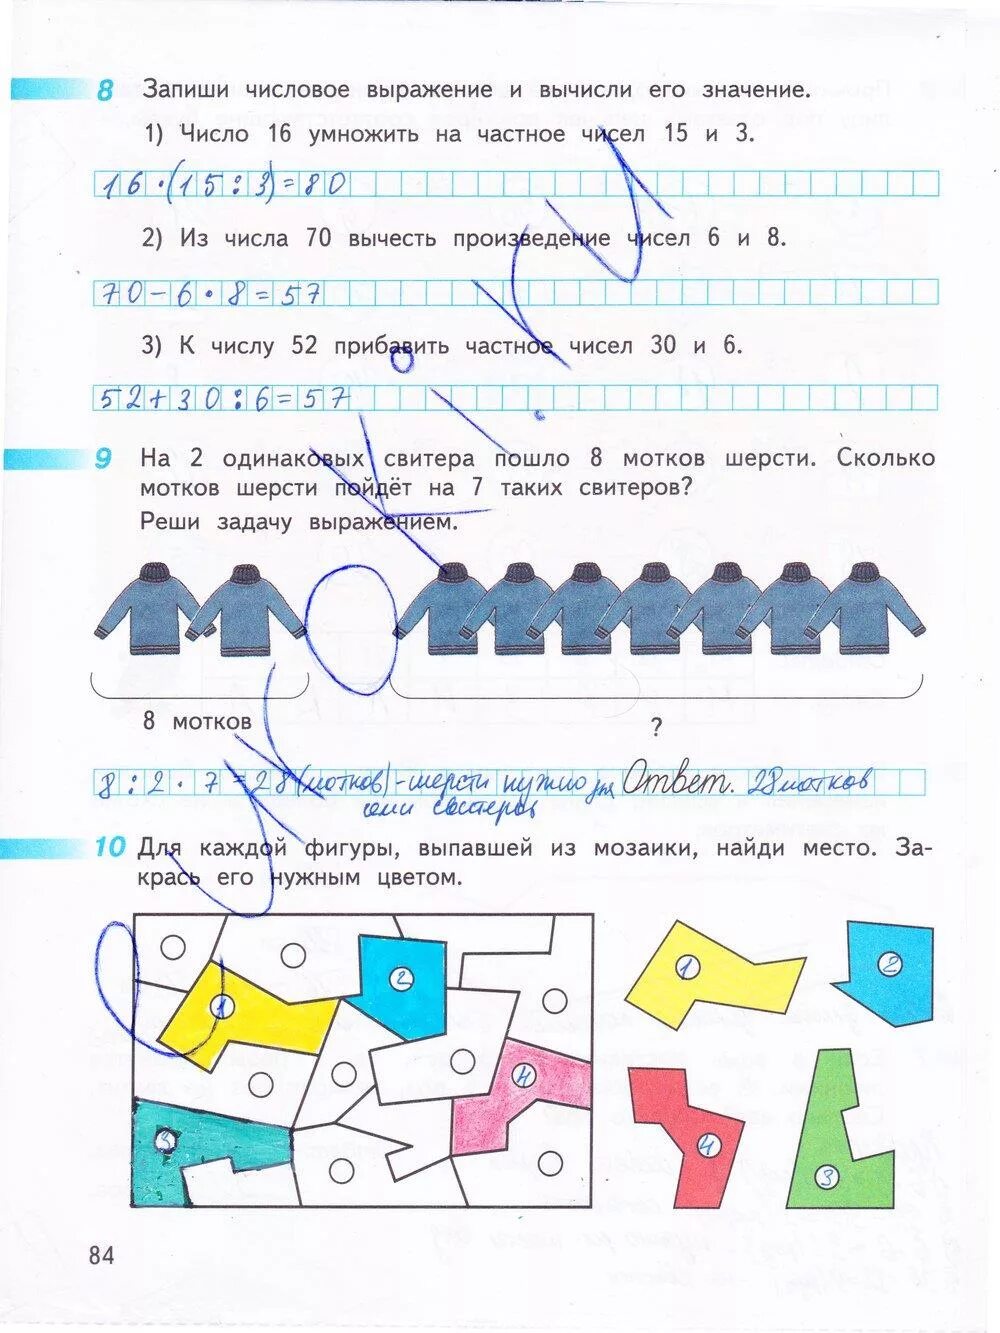 8 Запиши числовое выражение и вычисли его значение.
1) Число 16 умножить на частное чисел 15 и 3.
16·(15:3)=80
2) Из числа 70 вычесть произведение чисел 6 и 8.
70-6·8=57
3) К числу 52 прибавить частное чисел 30 и 6.
52+30:6=57
9 На 2 одинаковых свитера пошло 8 мотков шерсти. Сколько
мотков шерсти пойдёт на 7 таких свитеров?
Реши задачу выражением.
8 мотков
?
8:2·7=28(мотков)-шерсти нужно для Ответ. 28 мотков
семи свитеров
10 Для каждой фигуры, выпавшей из мозаики, найди место. За-
крась его нужным цветом.
1
2
1
2
4
3
4
3
84